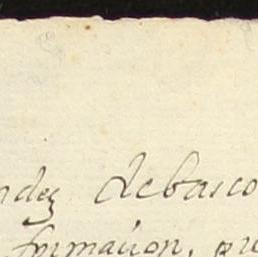 ndez debasco
formacion, qu